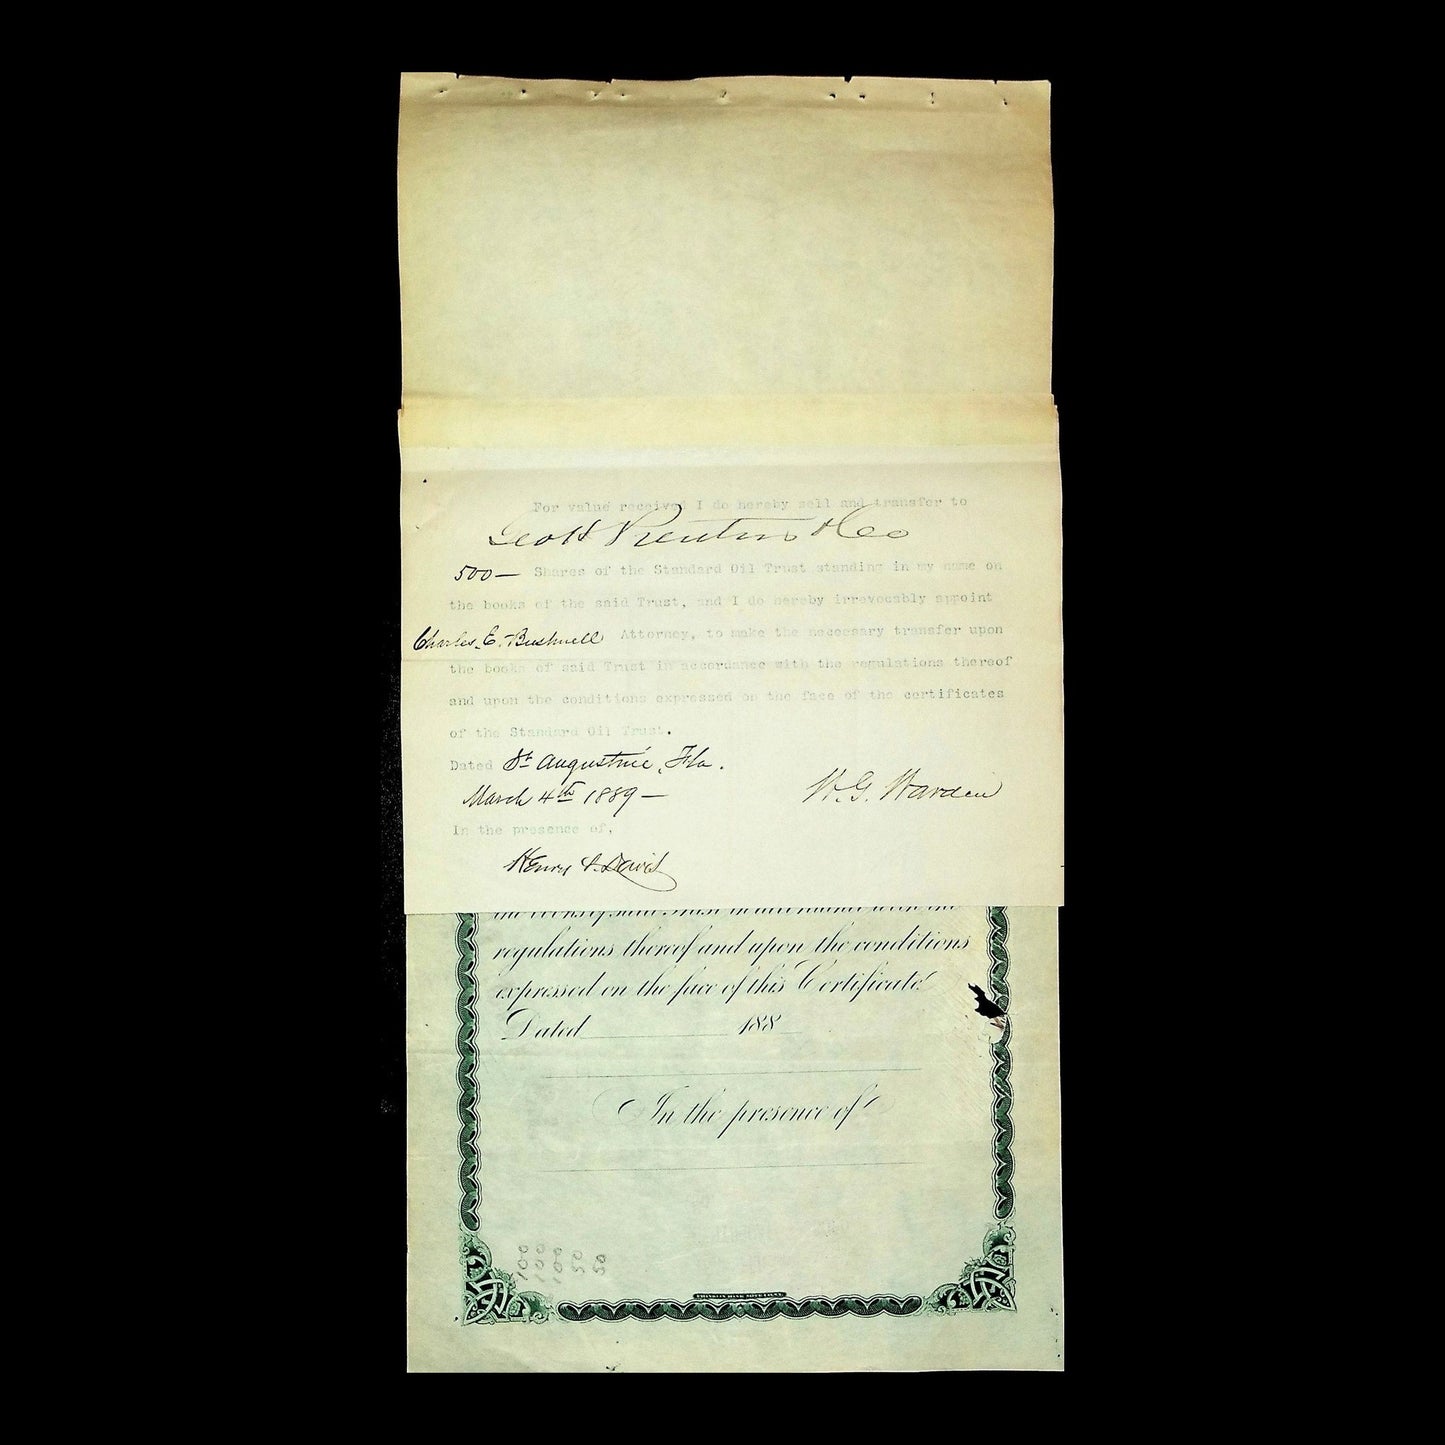 For value received I do hereby sell and transfer to
Geo H Prentiss & Co
500— Shares of the Standard Oil Trust standing in my name on
the books of the said Trust, and I do hereby irrevocably appoint
Charles E. Bushnell Attorney, to make the necessary transfer upon
the books of said Trust in accordance with the regulations thereof
and upon the conditions expressed on the face of the certificates
of the Standard Oil Trust.
Dated St Augustine, Fla.
March 4th 1889—
W. G. Warden
In the presence of,
Henry Davis
the books of said Trust in accordance with the
regulations thereof and upon the conditions
expressed on the face of this Certificate
Dated 188
In the presence of
100
100
100
50
50
FRANKLIN BANK NOTE